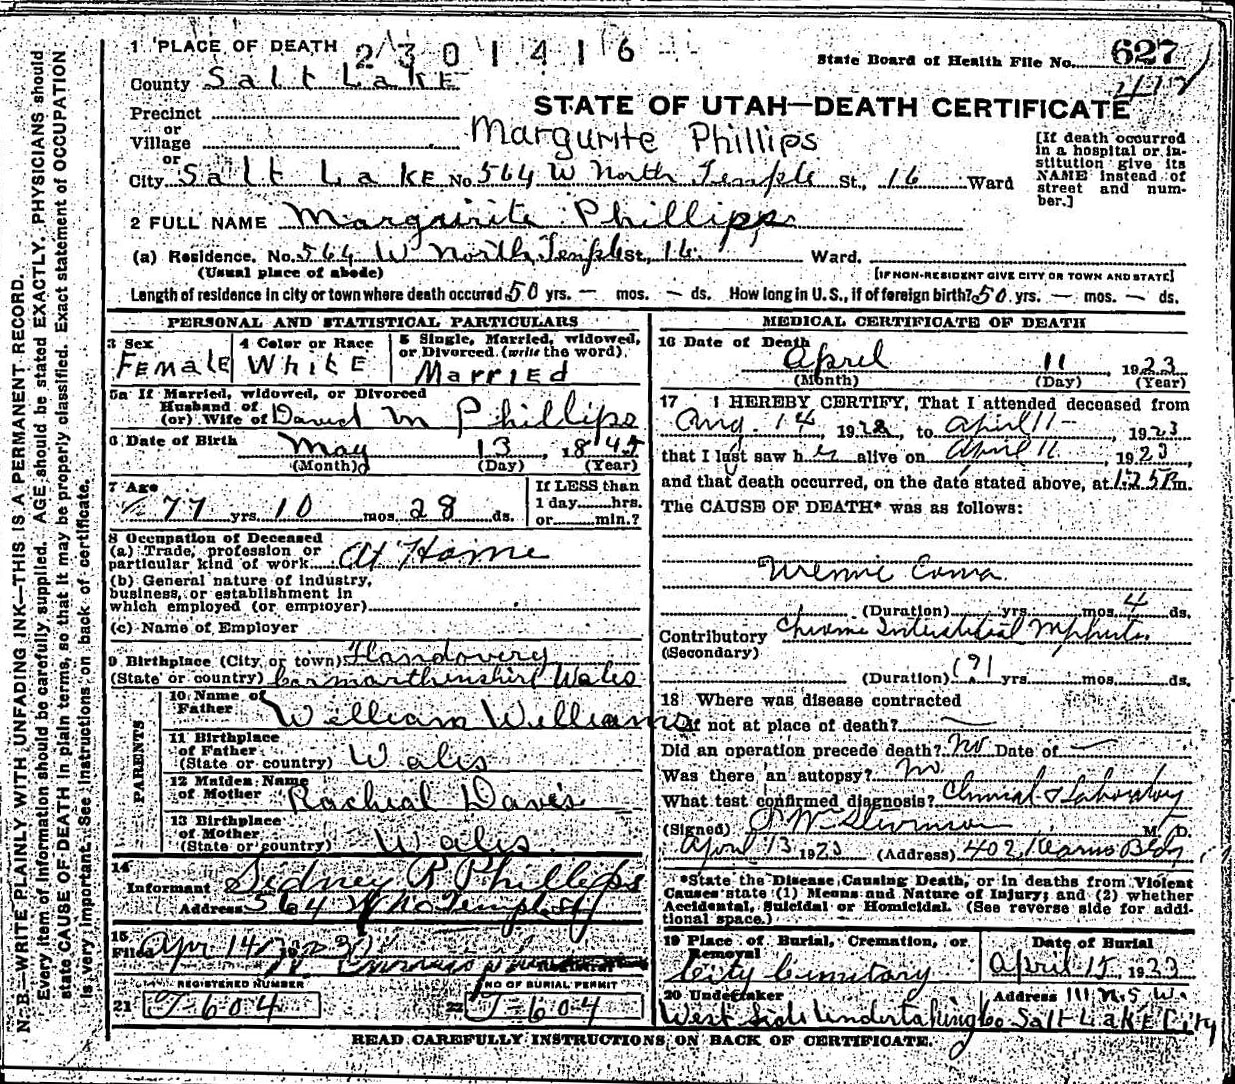 1 PLACE OF DEATH 2301416
State Board of Health File No. 627
County Salt Lake
STATE OF UTAH—DEATH CERTIFICATE
Precinct
or
Village
or
Margurite Phillips
[If death occurred in a hospital or institution give its NAME instead of street and number.]
City Salt Lake No. 564 W North Temple St., 16 Ward
2 FULL NAME Margurite Phillips
(a) Residence. No. 564 W North Temple St., 16 Ward.
(Usual place of abode) [IF NON-RESIDENT GIVE CITY OR TOWN AND STATE]
Length of residence in city or town where death occured 50 yrs. — mos. — ds. How long in U. S., if of foreign birth? 50 yrs. — mos. — ds.
N. B.—WRITE PLAINLY WITH UNFADING INK—THIS IS A PERMANENT RECORD.
Every item of information should be carefully supplied. AGE should be stated EXACTLY. PHYSICIANS should
state CAUSE OF DEATH in plain terms, so that it may be properly classified. Exact statement of OCCUPATION
is very important. See instructions on back of certificate.
PERSONAL AND STATISTICAL PARTICULARS
3 Sex Female
4 Color or Race White
5 Single, Married, widowed, or Divorced (write the word) Married
5a If Married, widowed, or Divorced
Husband of
(or) Wife of David M Phillips
6 Date of Birth May 13, 1845
(Month) (Day) (Year)
7 Age 77 yrs. 10 mos. 28 ds.
If LESS than
1 day......hrs.
or......min.?
8 Occupation of Deceased
(a) Trade, profession or
particular kind of work At Home
(b) General nature of industry,
business, or establishment in
which employed (or employer)
(c) Name of Employer
9 Birthplace (City or town) Llandovery
(State or country) Carmarthinshire Wales
PARENTS
10 Name of
Father William Williams
11 Birthplace
of Father
(State or country) Wales
12 Maiden Name
of Mother Racheal Davis
13 Birthplace
of Mother
(State or country) Wales
14
Informant Sidney P Phillips
Address 564 W No Temple St
15
Filed Apr 14 1923
Registrar
REGISTERED NUMBER
21 J-604
NO OF BURIAL PERMIT
22 J-604
MEDICAL CERTIFICATE OF DEATH
16 Date of Death
April 11 1923
(Month) (Day) (Year)
17 I HEREBY CERTIFY, That I attended deceased from
Aug. 14, 1922, to April 11-, 1923
that I last saw her alive on April 11, 1923,
and that death occurred, on the date stated above, at 1:25 Pm.
The CAUSE OF DEATH* was as follows:
Uremic Coma
(Duration) yrs. mos. 4 ds.
Contributory Chronic Interstitial Nephritis
(Secondary)
(Duration) (?) yrs. mos. ds.
18 Where was disease contracted
if not at place of death? —
Did an operation precede death? No Date of —
Was there an autopsy? No
What test confirmed diagnosis? Clinical & Laboratory
(Signed) J W Stevenson M. D.
April 13 1923 (Address) 402 Kearns Bldg
*State the Disease Causing Death, or in deaths from Violent
Causes state (1) Means and Nature of Injury; and (2) whether
Accidental, Suicidal or Homicidal. (See reverse side for addi-
tional space.)
19 Place of Burial, Cremation, or Removal
City Cemitary
Date of Burial
April 15, 1923
20 Undertaker
West Side Undertaking Co
Address 111 N. 5 W.
Salt Lake City
READ CAREFULLY INSTRUCTIONS ON BACK OF CERTIFICATE.